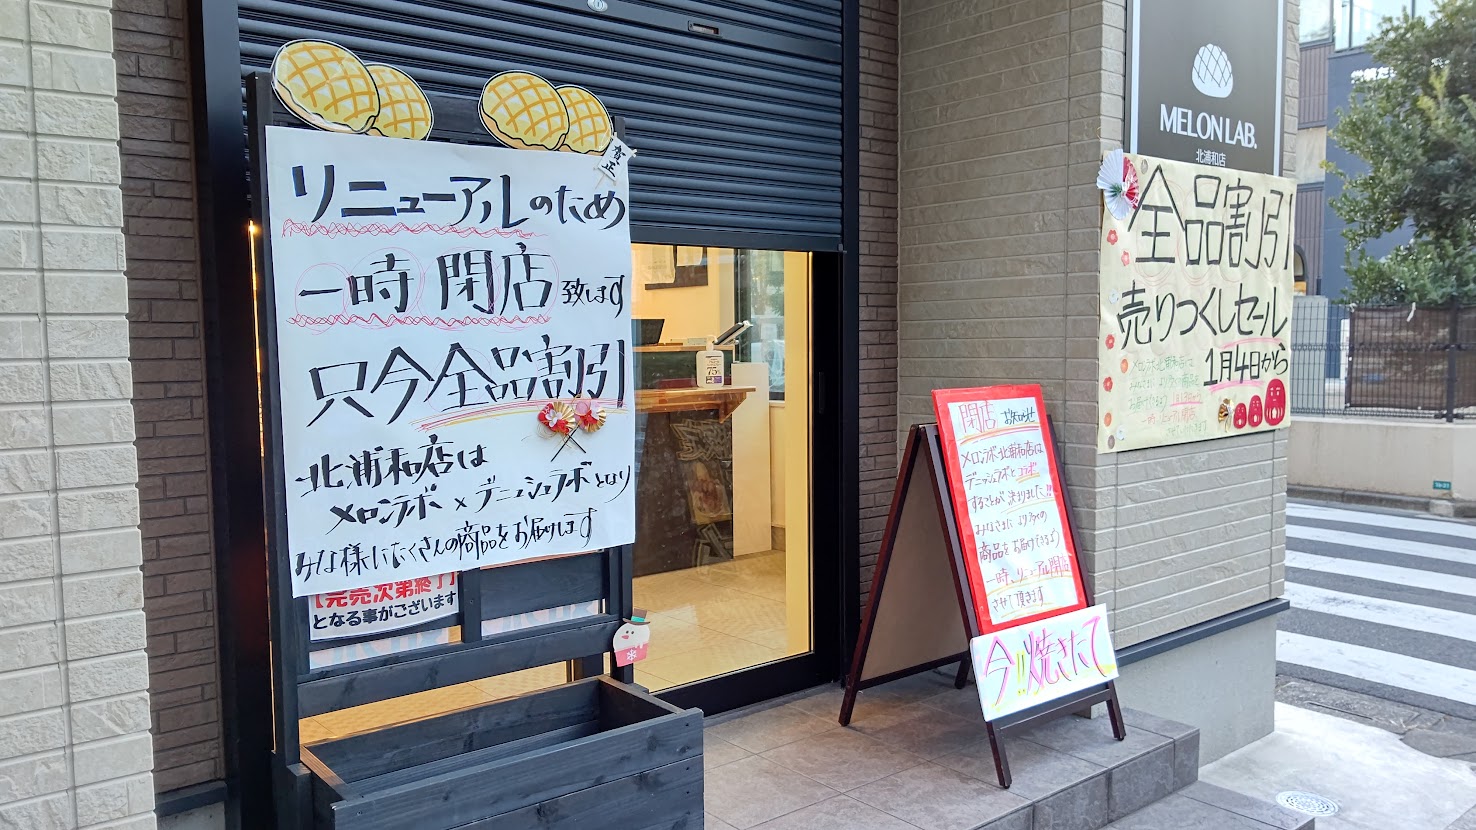 賀正
リニューアルのため
一時閉店致します
只今全品割引
北浦和店は
メロンラボ×デニッシュラボとなり
みな様にたくさんの商品をお届けします
【完売次第終了】
となる事がございます
75
閉店お知らせ
メロンラボ北浦和店は
デニッシュラボとコラボ
することが決まりました!!
みなさまにより多くの
商品をお届けできるよう
一時、リニューアル閉店
させて頂きます
今!!焼きたて
MELON LAB.
北浦和店
全品割引
売りつくしセール
1月4日から
メロンラボ北浦和店は